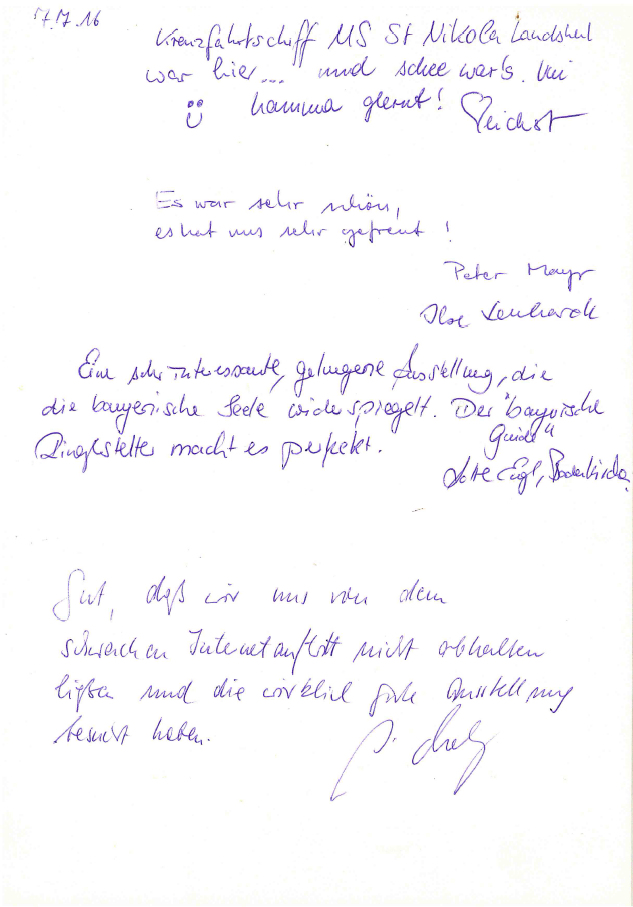 17.7.16
Kreuzfahrtschiff MS St Nikola Landshut
war hier... und schee war's. Vui
hamma glernt!
Es war sehr schön,
es hat uns sehr gefreut!
Peter Mayr
Ilse Lenhardt
Eine sehr interessante, gelungene Ausstellung, die
die bayerische Seele widerspiegelt. Der "bayrische
Guide"
macht es perfekt.
Lotte Engl, Bodenkirchen
Gut, daß wir uns von dem
schwachen Internetauftritt nicht abhalten
ließen und die wirklich gute Ausstellung
besucht haben.